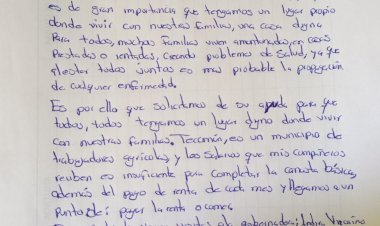 es de gran importancia que tengamos un lugar propio
donde vivir con nuestras familias, una casa digna
Para todos, muchas familias viven amontonadas, en casas
Prestadas o rentadas, creando problema de Salud, ya que
al estar todos juntos es mas probable la propagación
de cualquier enfermedad.
Es por ello que solicitamos de su ayuda para que
todos, todos tengamos un lugar digno donde vivir
con nuestras familias. Tecomán, es un municipio de
trabajadores agricolas y los Salarios que mis compañeros
reciben es insuficiente para completar la canasta básica,
además del pago de renta de cada mes y llegamos a un
Punto de: pagar la renta o comer.
gobernadora: Indira Vizcaíno